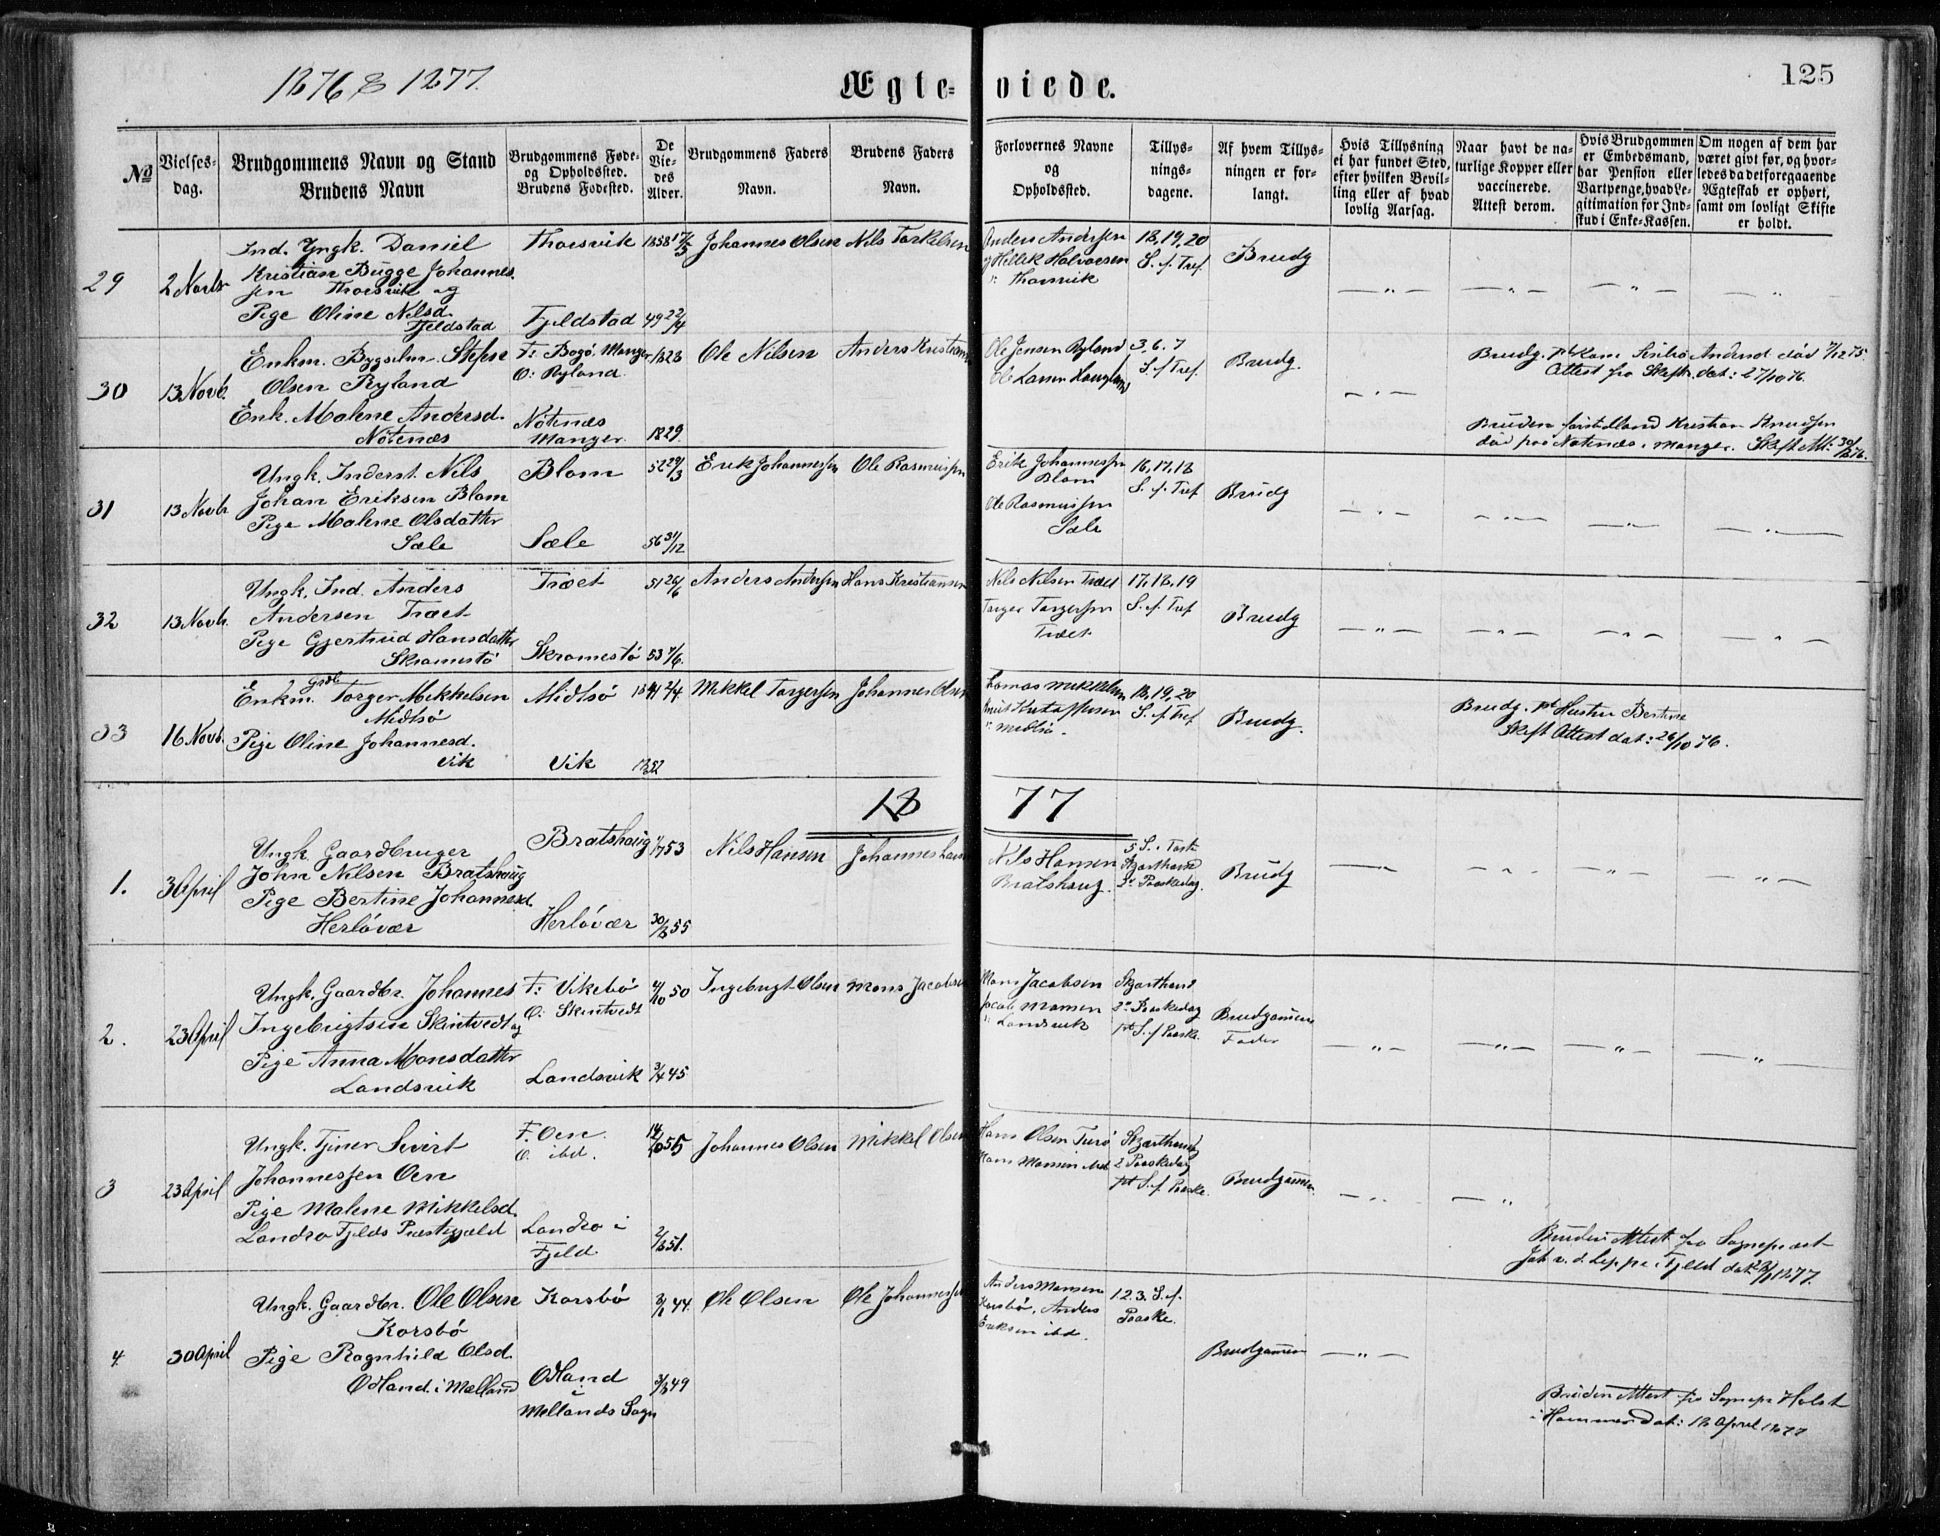 1876 & 1877.
Ægte-viede.
125
No
Vielses-dag.
Brudgommens Navn og Stand
Brudens Navn
Brudgommens Føde- og Opholdssted.
Brudens Fødested.
De Vie-des Alder.
Brudgommens Faders Navn.
Brudens Faders Navn.
Forlovernes Navne og Opholdssted.
Tillys-nings-dagene.
Af hvem Tillys-ningen er for-langt.
Hvis Tillysning ei har fundet Sted, efter hvilken Bevil-ling eller af hvad lovlig Aarsag.
Naar havt de na-turlige Kopper eller vaccinerede. Attest derom.
Hvis Brudgommen er Embedsmand, har Pension eller Vartpenge, hvad Le-gitimation for Ind-skud i Enke-Kassen.
Om nogen af dem har været givt før, og hvor-ledes da det foregaaende Ægteskab er ophørt, samt om lovligt Skifte er holdt.
29
2 Novbr
Ind. Yngk. Daniel
Kristian Bugge Johannes-
sen Thorsvik og
Pige Oline Nilsd.
Fjeldstad
Thorsvik
Fjeldstad
1858 17/3
49 22/4
Johannes Olsen
Nils Torkelsen
Anders Andersen
Hellik Halvorsen
Thorsvik
18, 19, 20
S. f. Tref.
Brudg
30
13 Novb.
Enkm. Bygselm. Steffen
Olsen Ryland
Enk. Malene Andersd.
Nötenæs
F: Bogö Manger
O: Ryland.
Nötenæs
Manger.
1828
1829.
Ole Nilsen
Anders Kristians
Ole Jensen Ryland
Ole Larsen
3, 6. 7
S. f Tref.
Brudg.
Brudg. Andersd. död 7/12 75.
Attest fra Skiftr. dat: 27/10 76.
Bruden Kristian Knudsen
död paa Nötenæs i Manger. Skift Att: 30/
31
13 Novbr
Ungk. Inderst. Nils
Johan Eriksen Blom
Pige Malene Olsdatter
Sæle
Blom
Sæle
52 29/3
56 31/12
Erik Johannessen
Ole Rasmussen
Erik Johannessen
Blom
Ole Rasmussen
Sæle
16, 17, 18
S. f. Tref
Brudg
32
13 Novb.
Ungk. Ind. Anders
Andersen Træet
Pige Gjertrud Hansdatter
Skramestö
Træet
Skramestö
51 26/6
53 7/6.
Anders Andersen
Hans Kristiansen
Nils Nilsen Træet
Torger Torgersen
Træet
17, 18, 19
S. f. Tref
Brudg
33
16. Novb.
Enkm. Grdb. Torger Mikkelsen
Midtsö
Pige Oline Johannesd.
Vik
Midtsö
Vik
1841 2/4
Mikkel Torgersen
Johannes Olsen
Tomas Mikkelsen
Knut Kristoffersen
Midtsö.
18, 19, 20
S. f Tref
Brudg.
Brudg. Hustru Bertine
Skift Attest dat: 26/10 76.
1877
1.
3 April
Ungk. Gaardbruger
John Nilsen Bratshaug
Pige Bertine Johannesd.
Herlövær
Bratshaug
Herlövær
53
30/ 55
Nils Hansen
Johannes
Nils Hansen
Bratshaug.
5 S. i Fast.
Skjærthorsd
2. Paaskedag.
Brudg
2.
23 April
Ungk. Gaardbr. Johannes
Ingebrigtsen Skintvedt og
Pige Anna Monsdatter
Landsvik
F: Vikebö
O: Skintvedt
Landsvik
4/10 50
3/4 45
Ingebrigt Olsen
Mons Jacobsen
Mons Jacobsen
Jacob Monsen
Landsvik
Skjærthorsd
2. Paaskedag
1st S. f Paaske.
Brudgommens
Fader
3
23 April
Ungk. Tjener Sivert
Johannessen Oen
Pige Malene Mikkelsd.
Landro Fjelds Præstegjæld
F. Oen.
O. ibd.
Landro i
Fjeld
55
51.
Johannes Olsen
Mikkel Olsen
Hans Olsen Turö
Hans Monsen ibd
Skjærthorsd
2 Paaskedag
1st S. f. Paaske.
Brudgommen
Bruden Attest fra Sognepræst
Joh. v. d. Lippe i Fjeld dat 1877.
4.
30 April
Ungk. Gaardbr. Ole Olsen
Korsbö
Pige Ragnhild Olsd.
Odland i Mælland
Korsbö
Odland
i
Mellands Sogn
44.
49
Ole Olsen
Ole Johannessen
Anders Monsen
Korsbö, Anders
Eriksen ibd.
1 2. 3. S. f.
Paaske.
Brudgommen
Bruden Attest fra Sognepr Holst
i Hammer dat: 18 April 1877